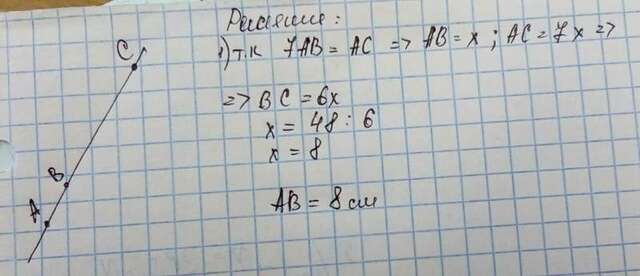 Решение:
1) т.к 7AB = AC => AB = x ; AC = 7x =>
=> BC = 6x
x = 48 : 6
x = 8
AB = 8 см
C
B
A